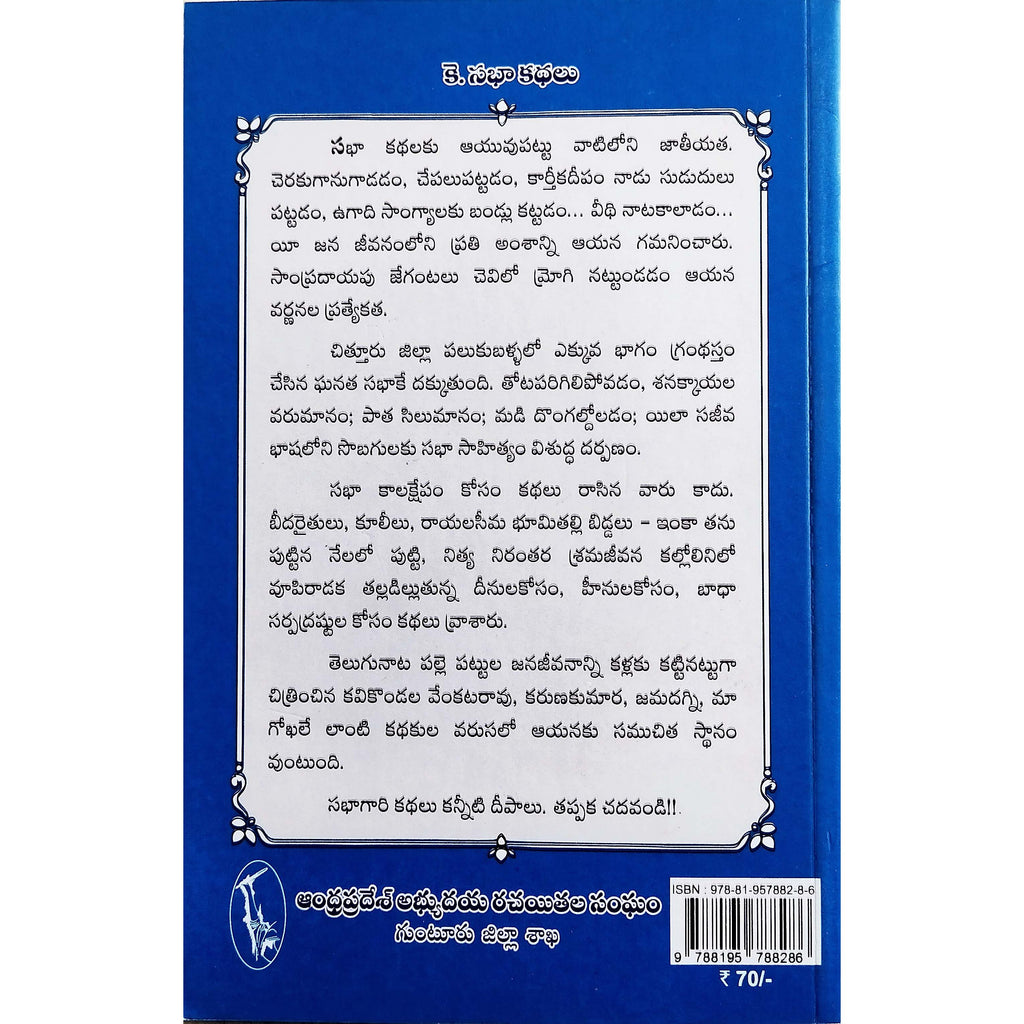 కె. సభా కథలు
సభా కథలకు ఆయువుపట్టు వాటిలోని జాతీయత.
చెరకుగానుగాడడం, చేపలుపట్టడం, కార్తీకదీపం నాడు సుడుదులు
పట్టడం, ఉగాది సాంగ్యాలకు బండ్లు కట్టడం... వీథి నాటకాలాడం...
యీ జన జీవనంలోని ప్రతి అంశాన్ని ఆయన గమనించారు.
సాంప్రదాయపు జేగంటలు చెవిలో మ్రోగి నట్టుండడం ఆయన
వర్ణనల ప్రత్యేకత.
చిత్తూరు జిల్లా పలుకుబళ్ళలో ఎక్కువ భాగం గ్రంథస్తం
చేసిన ఘనత సభాకే దక్కుతుంది. తోటపరిగిలిపోవడం, శనక్కాయల
వరుమానం; పాత సిలుమానం; మడి దొంగల్దోలడం; యిలా సజీవ
భాషలోని సొబగులకు సభా సాహిత్యం విశుద్ధ దర్పణం.
సభా కాలక్షేపం కోసం కథలు రాసిన వారు కాదు.
బీదరైతులు, కూలీలు, రాయలసీమ భూమితల్లి బిడ్డలు – ఇంకా తను
పుట్టిన నేలలో పుట్టి, నిత్య నిరంతర శ్రమజీవన కల్లోలినిలో
వూపిరాడక తల్లడిల్లుతున్న దీనులకోసం, హీనులకోసం, బాధా
సర్పద్రష్టుల కోసం కథలు వ్రాశారు.
తెలుగునాట పల్లె పట్టుల జనజీవనాన్ని కళ్లకు కట్టినట్టుగా
చిత్రించిన కవికొండల వేంకటరావు, కరుణకుమార, జమదగ్ని, మా
గోఖలే లాంటి కథకుల వరుసలో ఆయనకు సముచిత స్థానం
వుంటుంది.
సభాగారి కథలు కన్నీటి దీపాలు. తప్పక చదవండి!!
ఆంధ్రప్రదేశ్ అభ్యుదయ రచయితల సంఘం
గుంటూరు జిల్లా శాఖ
ISBN : 978-81-957882-8-6
9 788195 788286
₹ 70/-